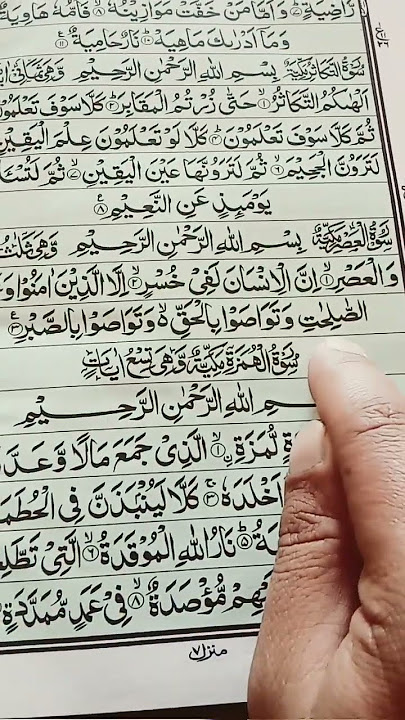 رَّاضِيَةٍ ۞ وَاَمَّا مَنْ خَفَّتْ مَوَازِيْنُهٗ ۸ فَاُمُّهٗ هَاوِيَةٌ
وَمَاۤ اَدْرٰىكَ مَاهِيَهْ ۱۰ نَارٌ حَامِيَةٌ ۱۱
سُوْرَةُ التَّكَاثُرِ مَكِّيَّةٌ بِسْمِ اللهِ الرَّحْمٰنِ الرَّحِيْمِ وَّهِىَ ثَمَانِىْ
اَلْهٰىكُمُ التَّكَاثُرُ ۱ حَتّٰى زُرْتُمُ الْمَقَابِرَ ۲ كَلَّا سَوْفَ تَعْلَمُوْنَ
ثُمَّ كَلَّا سَوْفَ تَعْلَمُوْنَ ۴ كَلَّا لَوْ تَعْلَمُوْنَ عِلْمَ الْيَقِيْنِ
لَتَرَوُنَّ الْجَحِيْمَ ۶ ثُمَّ لَتَرَوُنَّهَا عَيْنَ الْيَقِيْنِ ۷ ثُمَّ
يَوْمَئِذٍ عَنِ النَّعِيْمِ ۸
سُوْرَةُ الْعَصْرِ مَكِّيَّةٌ بِسْمِ اللهِ الرَّحْمٰنِ الرَّحِيْمِ وَّهِىَ
وَالْعَصْرِ ۱ اِنَّ الْاِنْسَانَ لَفِىْ خُسْرٍ ۲ اِلَّا الَّذِيْنَ اٰمَنُوْا
الصّٰلِحٰتِ وَتَوَاصَوْا بِالْحَقِّ ۵ وَتَوَاصَوْا بِالصَّبْرِ ۳
سُوْرَةُ الْهُمَزَةِ مَكِّيَّةٌ وَّهِىَ تِسْعُ اٰيَاتٍ
اللهِ الرَّحْمٰنِ الرَّحِيْمِ
لُّمَزَةٍ ۱ الَّذِىْ جَمَعَ مَالًا وَّعَدَّ
اَخْلَدَهٗ ۳ كَلَّا لَيُنْۢبَذَنَّ فِى الْحُطَمَ
۵ نَارُ اللهِ الْمُوْقَدَةُ ۶ الَّتِىْ تَطَّلِ
مُّؤْصَدَةٌ ۸ فِىْ عَمَدٍ مُّمَدَّدَةٍ
منزل ۷